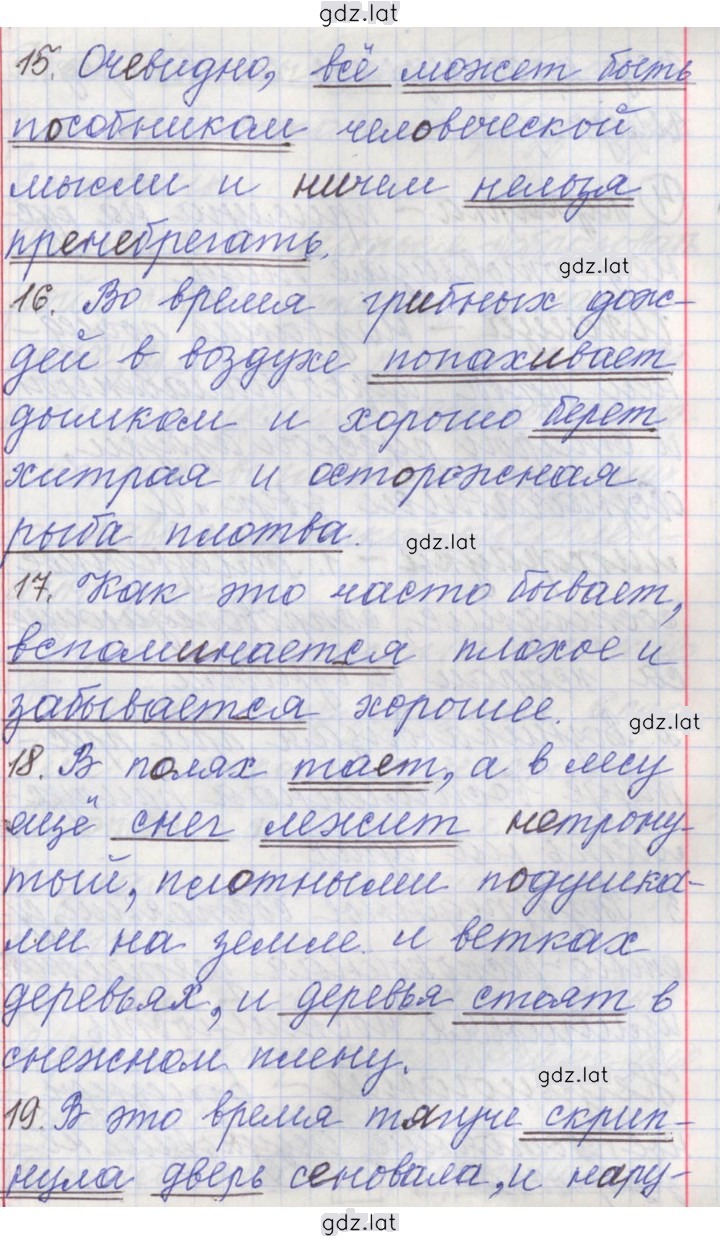 gdz.lat
15. Очевидно, всё может быть
пособником человеческой
мысли и ничем нельзя
пренебрегать.
gdz.lat
16. Во время грибных дож-
дей в воздухе попахивает
дымком и хорошо берет
хитрая и осторожная
рыба плотва.
gdz.lat
17. Как это часто бывает,
вспоминается плохое и
забывается хорошее.
gdz.lat
18. В полях тает, а в лесу
ещё снег лежит нетрону-
тый, плотными подушка-
ми на земле и ветках
деревьях, и деревья стоят в
снежном плену.
gdz.lat
19. В это время тягуче скрип-
нула дверь сеновала, и нару-
gdz.lat